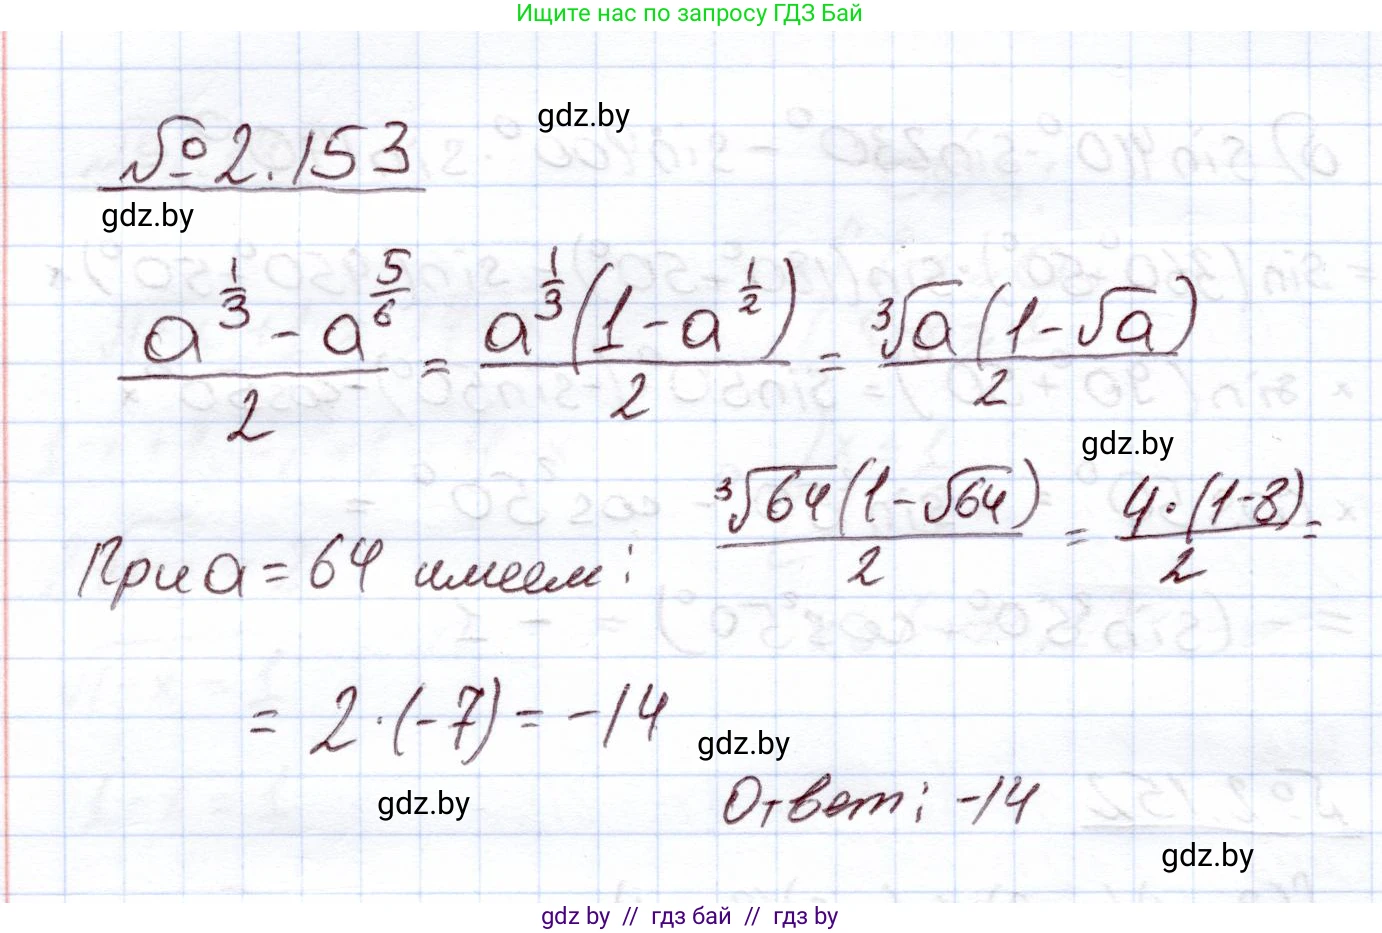 Ищите нас по запросу ГДЗ Бай
gdz.by
№ 2.153
gdz.by
a^{1/3} - a^{5/6} / 2 = a^{1/3}(1 - a^{1/2}) / 2 = ∛a(1 - √a) / 2
gdz.by
При a = 64 имеем: ∛64(1 - √64) / 2 = 4·(1-8) / 2 =
= 2·(-7) = -14
gdz.by
gdz.by
Ответ: -14
gdz.by
gdz by // гдз бай // гдз by